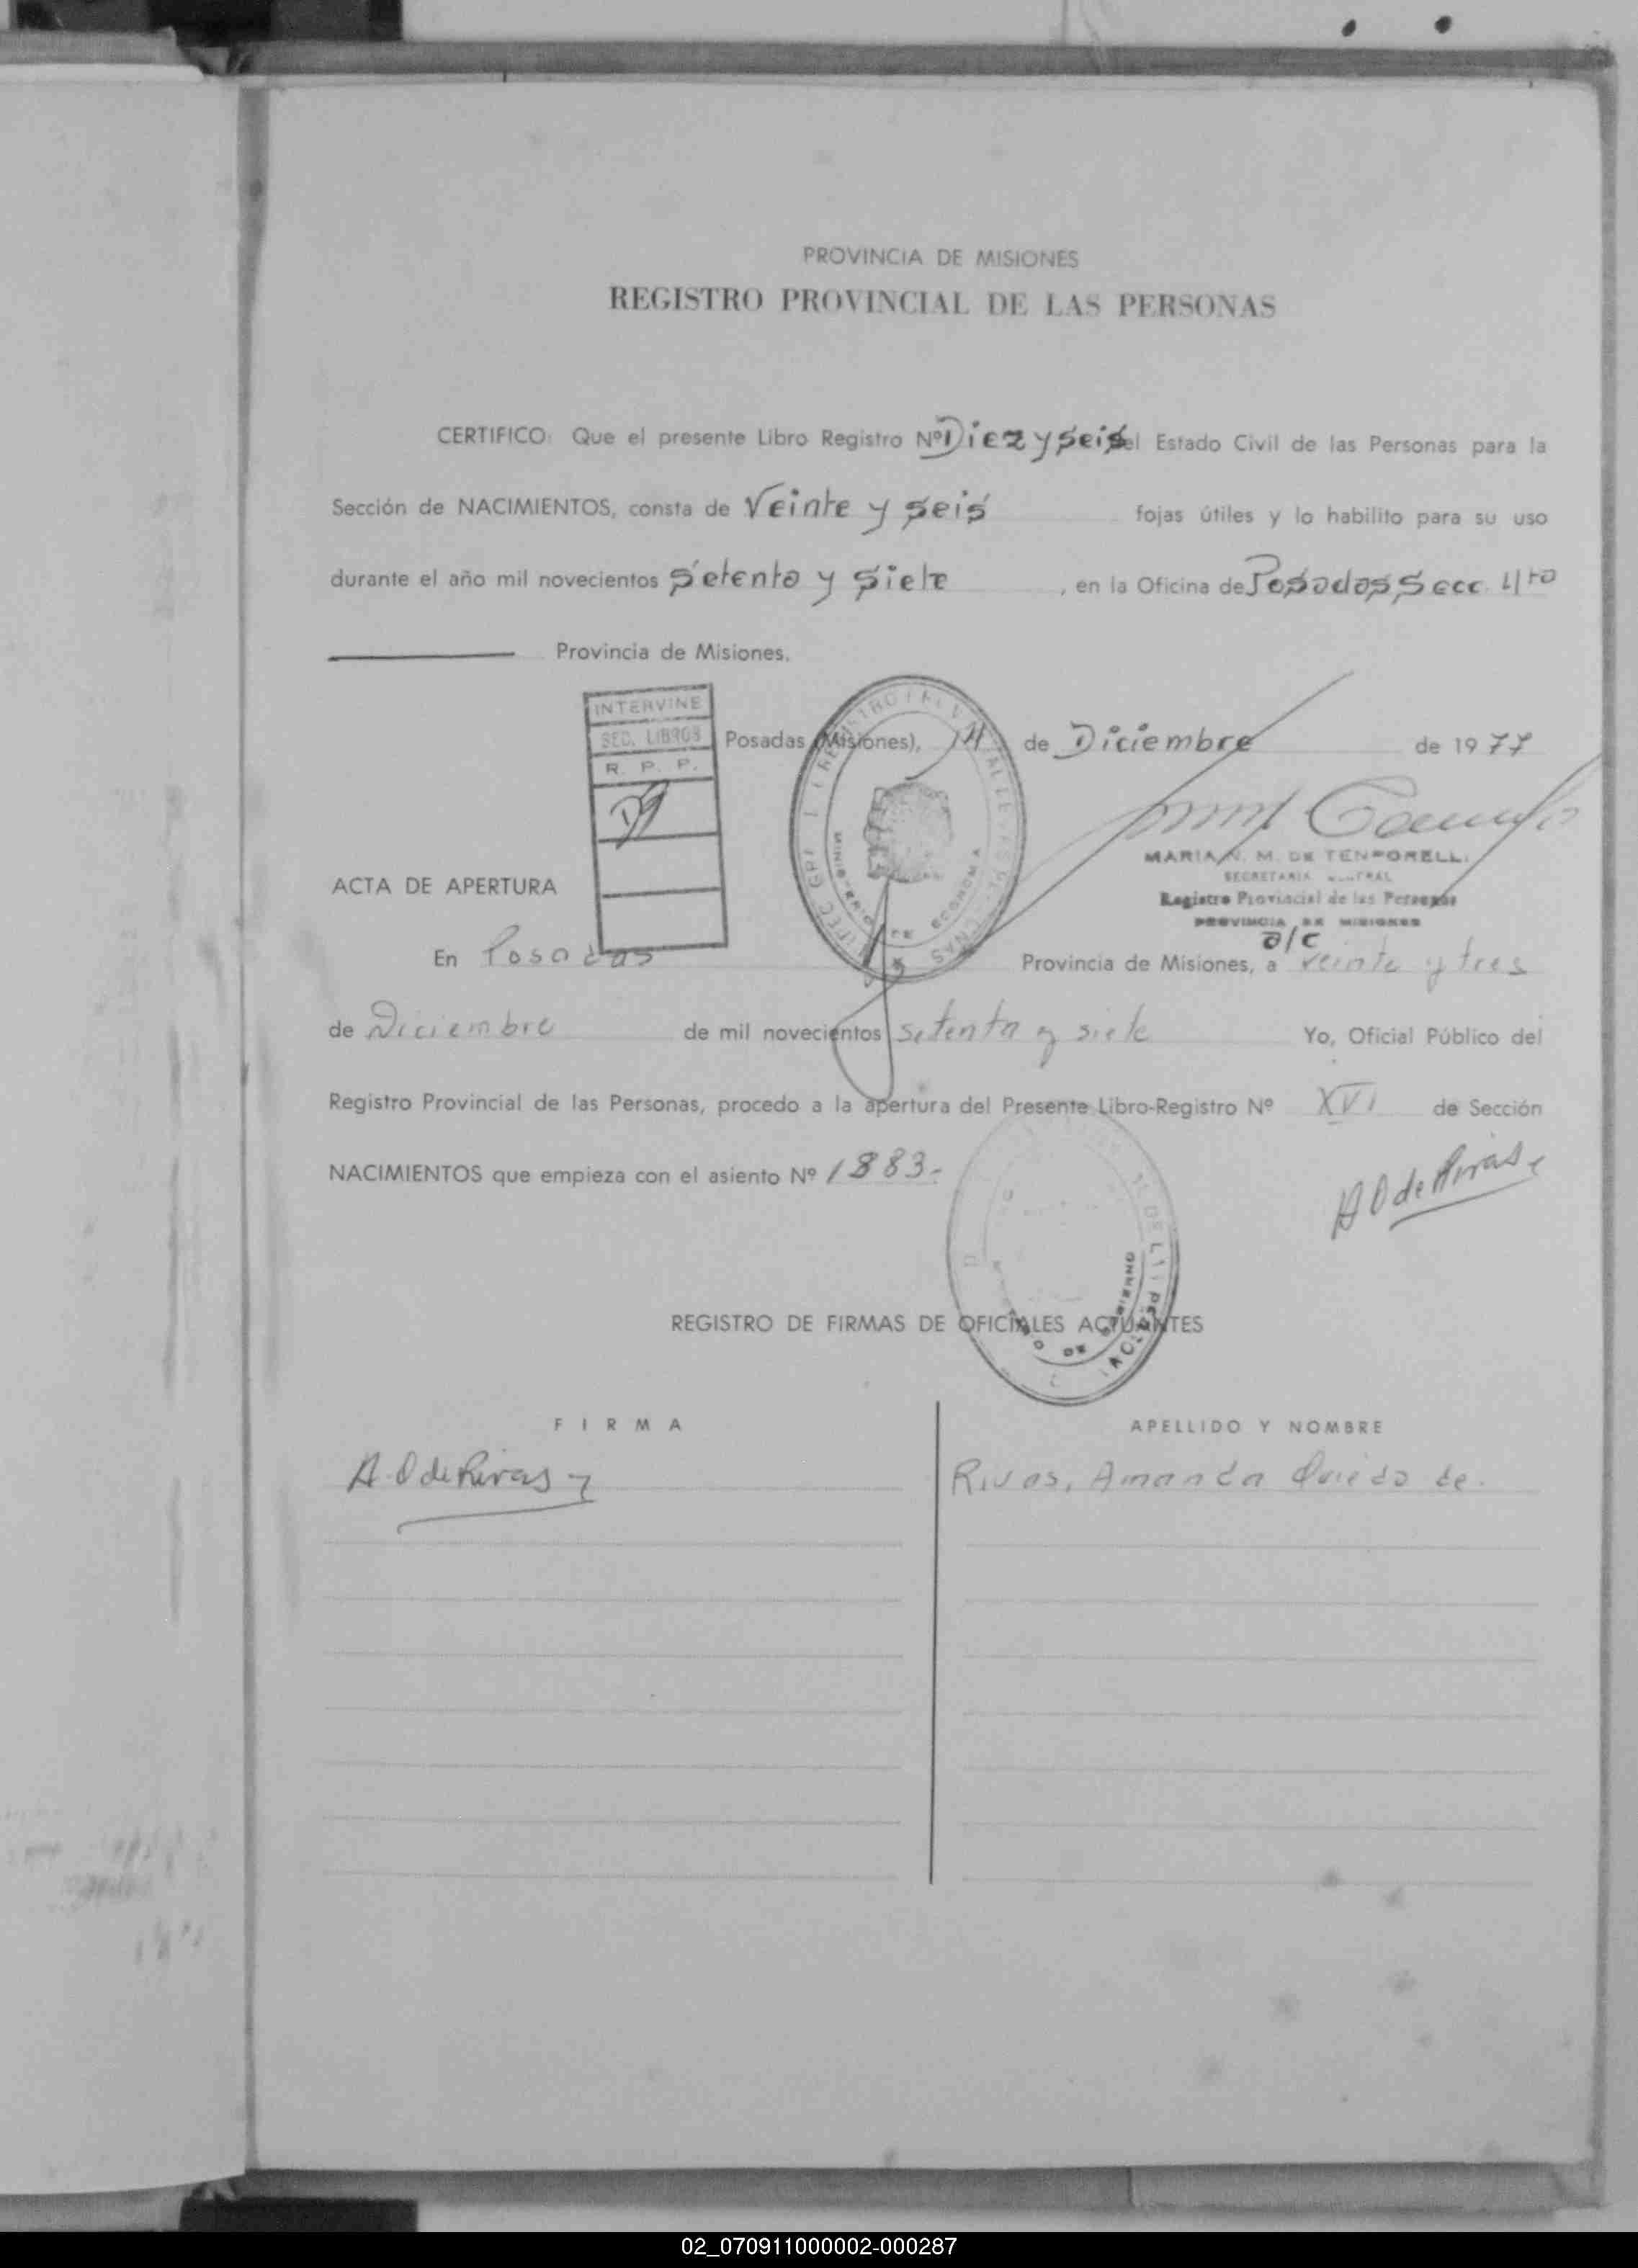 PROVINCIA DE MISIONES
REGISTRO PROVINCIAL DE LAS PERSONAS
CERTIFICO: Que el presente Libro Registro Nº Diez y seis del Estado Civil de las Personas para la
Sección de NACIMIENTOS, consta de Veinte y seis fojas útiles y lo habilito para su uso
durante el año mil novecientos Setenta y Siete, en la Oficina de Posadas Secc. 4ta
Provincia de Misiones.
INTERVINE
SEC. LIBROS
R. P. P.
Posadas (Misiones), de Diciembre de 1977
MARIA N. M. DE TEMPORELLI
SECRETARIA GENERAL
Registro Provincial de las Personas
PROVINCIA DE MISIONES
a/c
MINISTERIO DE ECONOMIA
ACTA DE APERTURA
En Posadas Provincia de Misiones, a veinte y tres
de Diciembre de mil novecientos setenta y siete Yo, Oficial Público del
Registro Provincial de las Personas, procedo a la apertura del Presente Libro-Registro Nº XVI de Sección
NACIMIENTOS que empieza con el asiento Nº 1883.-
A O de Rivas
REGISTRO DE FIRMAS DE OFICIALES ACTUANTES
FIRMA APELLIDO Y NOMBRE
A. O de Rivas Rivas, Amanda Oviedo de.
02_070911000002-000287